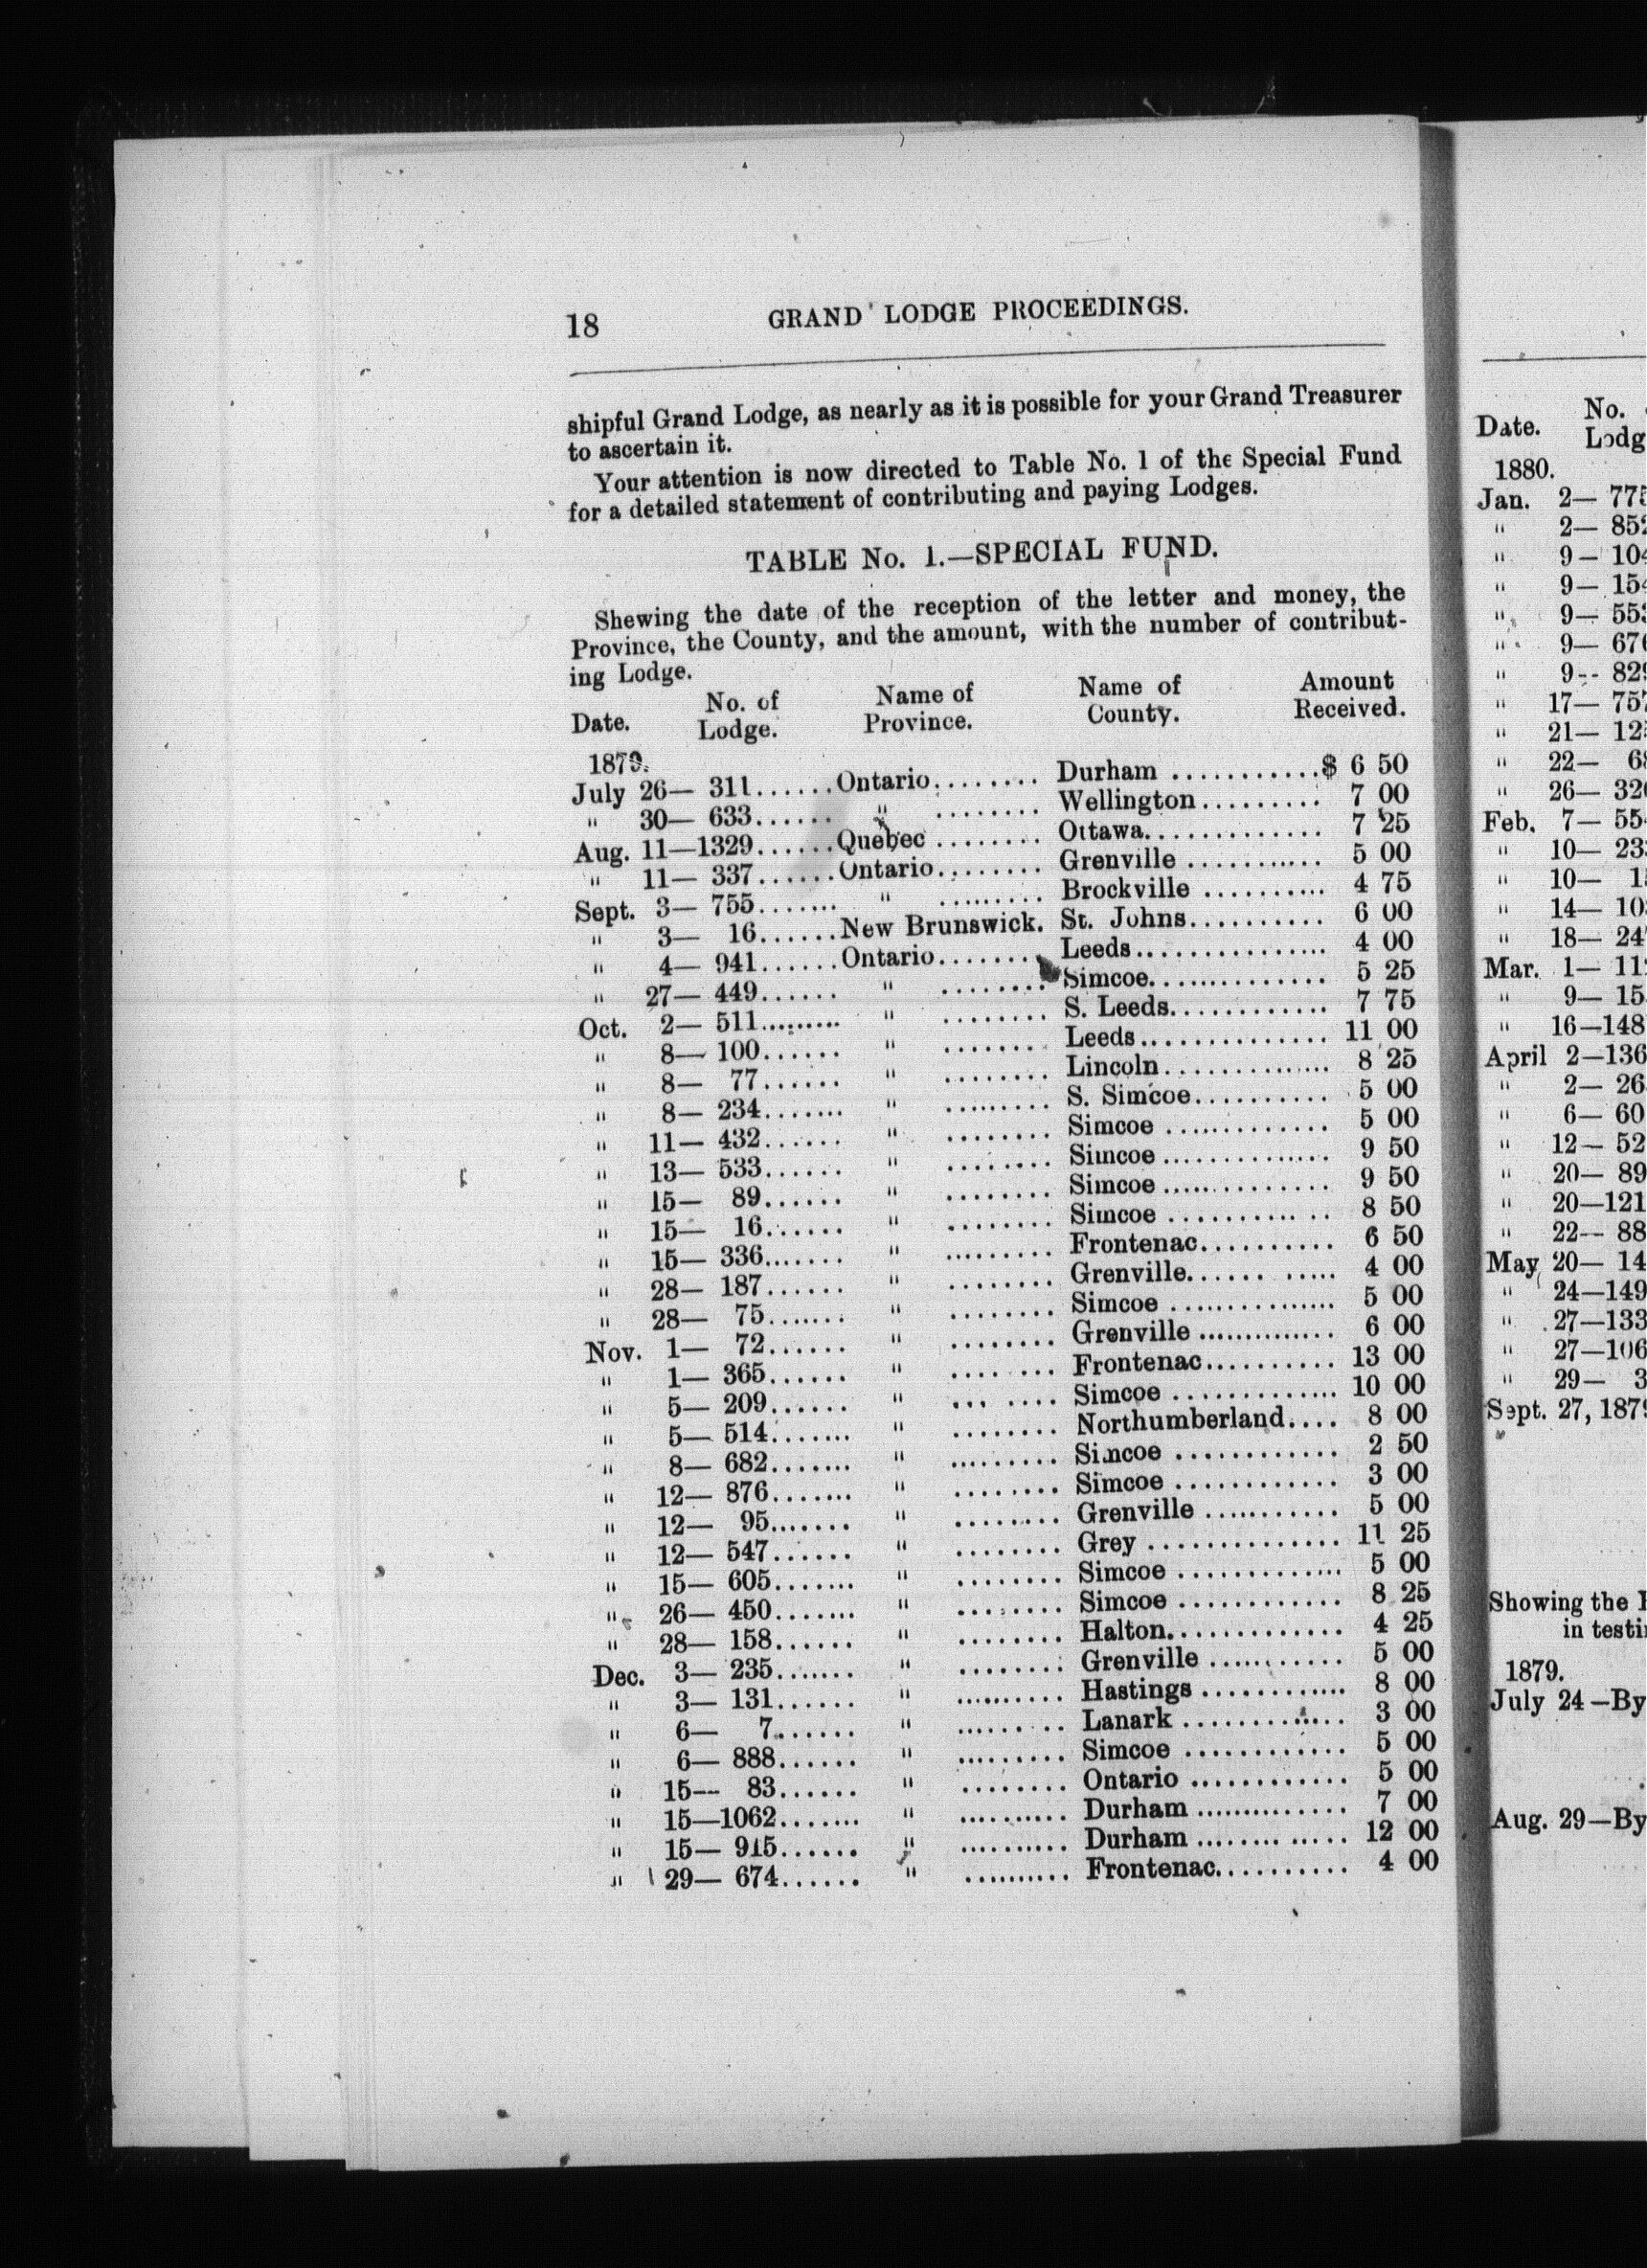 18 GRAND LODGE PROCEEDINGS.
shipful Grand Lodge, as nearly as it is possible for your Grand Treasurer
to ascertain it.
Your attention is now directed to Table No. 1 of the Special Fund
for a detailed statement of contributing and paying Lodges.
TABLE No. 1.—SPECIAL FUND.
Shewing the date of the reception of the letter and money, the
Province, the County, and the amount, with the number of contribut-
ing Lodge.
Date. No. of Lodge. Name of Province. Name of County. Amount Received.
1879.
July 26— 311......Ontario........ Durham ............$ 6 50
" 30— 633...... " ........ Wellington.......... 7 00
Aug. 11—1329......Quebec ........ Ottawa............. 7 25
" 11— 337......Ontario........ Grenville ........... 5 00
Sept. 3— 755....... " ......... Brockville .......... 4 75
" 3— 16......New Brunswick. St. Johns.......... 6 00
" 4— 941......Ontario........ Leeds................ 4 00
" 27— 449...... " ........ Simcoe.............. 5 25
Oct. 2— 511......... " ........ S. Leeds............ 7 75
" 8— 100...... " ........ Leeds.............. 11 00
" 8— 77...... " ........ Lincoln.............. 8 25
" 8— 234....... " ......... S. Simcoe.......... 5 00
" 11— 432...... " ........ Simcoe ............. 5 00
" 13— 533...... " ........ Simcoe .............. 9 50
" 15— 89...... " ........ Simcoe ............. 9 50
" 15— 16...... " ........ Simcoe ............. 8 50
" 15— 336....... " ......... Frontenac.......... 6 50
" 28— 187...... " ........ Grenville........... 4 00
" 28— 75....... " ........ Simcoe ............... 5 00
Nov. 1— 72...... " ........ Grenville ............. 6 00
" 1— 365...... " ........ Frontenac.......... 13 00
" 5— 209...... " ... .... Simcoe ............. 10 00
" 5— 514....... " ........ Northumberland.... 8 00
" 8— 682....... " ......... Simcoe ............ 2 50
" 12— 876....... " ........ Simcoe ............ 3 00
" 12— 95....... " ........ Grenville ........... 5 00
" 12— 547...... " ........ Grey .............. 11 25
" 15— 605....... " ........ Simcoe ............. 5 00
" 26— 450....... " ........ Simcoe ............ 8 25
" 28— 158...... " ........ Halton............. 4 25
Dec. 3— 235....... " ........ Grenville ........... 5 00
" 3— 131...... " .......... Hastings ............ 8 00
" 6— 7....... " ......... Lanark ............. 3 00
" 6— 888...... " ......... Simcoe ............ 5 00
" 15— 83...... " ........ Ontario ............ 5 00
" 15—1062....... " .......... Durham .............. 7 00
" 15— 915...... " .......... Durham .............. 12 00
" 29— 674...... " .......... Frontenac.......... 4 00
Date. No.
1880.
Jan. 2—
" 2—
" 9—
" 9—
" 9—
" 9—
" 9--
" 17—
" 21—
" 22—
" 26—
Feb. 7—
" 10—
" 10—
" 14—
" 18—
Mar. 1—
" 9—
" 16—
April 2—
" 2—
" 6—
" 12—
" 20—
" 20—
" 22—
May 20—
" 24—
" 27—
" 27—
" 29—
Sept. 27,
Showing the
in
1879.
July 24—By
Aug. 29—By